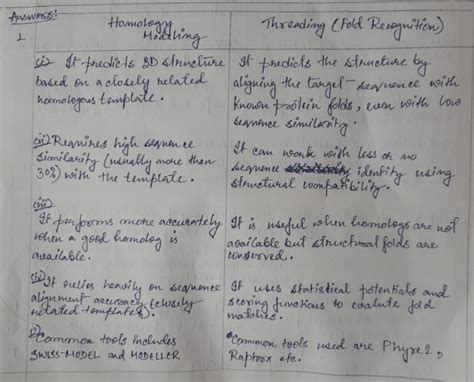 Answers:
1
Homology
Modelling
(i) It predicts 3D structure
based on a closely related
homologous template.
(ii) Requires high sequence
similarity (usually more than
30%) with the template.
(iii)
It performs more accurately
when a good homolog is
available.
(iv) It relies heavily on sequence
alignment accuracy (closely
related templates).
Common tools includes
SWISS-MODEL and MODELLER
Threading (Fold Recognition)
It predicts the structure by
aligning the target sequence with
known protein folds, even with low
sequence similarity.
It can work with less or no
sequence identity using
structural compatibility.
It is useful when homologs are not
available but structural folds are
conserved.
It uses statistical potentials and
scoring functions to evaluate fold
matches.
Common tools used are Phyre2,
Raptorx etc.